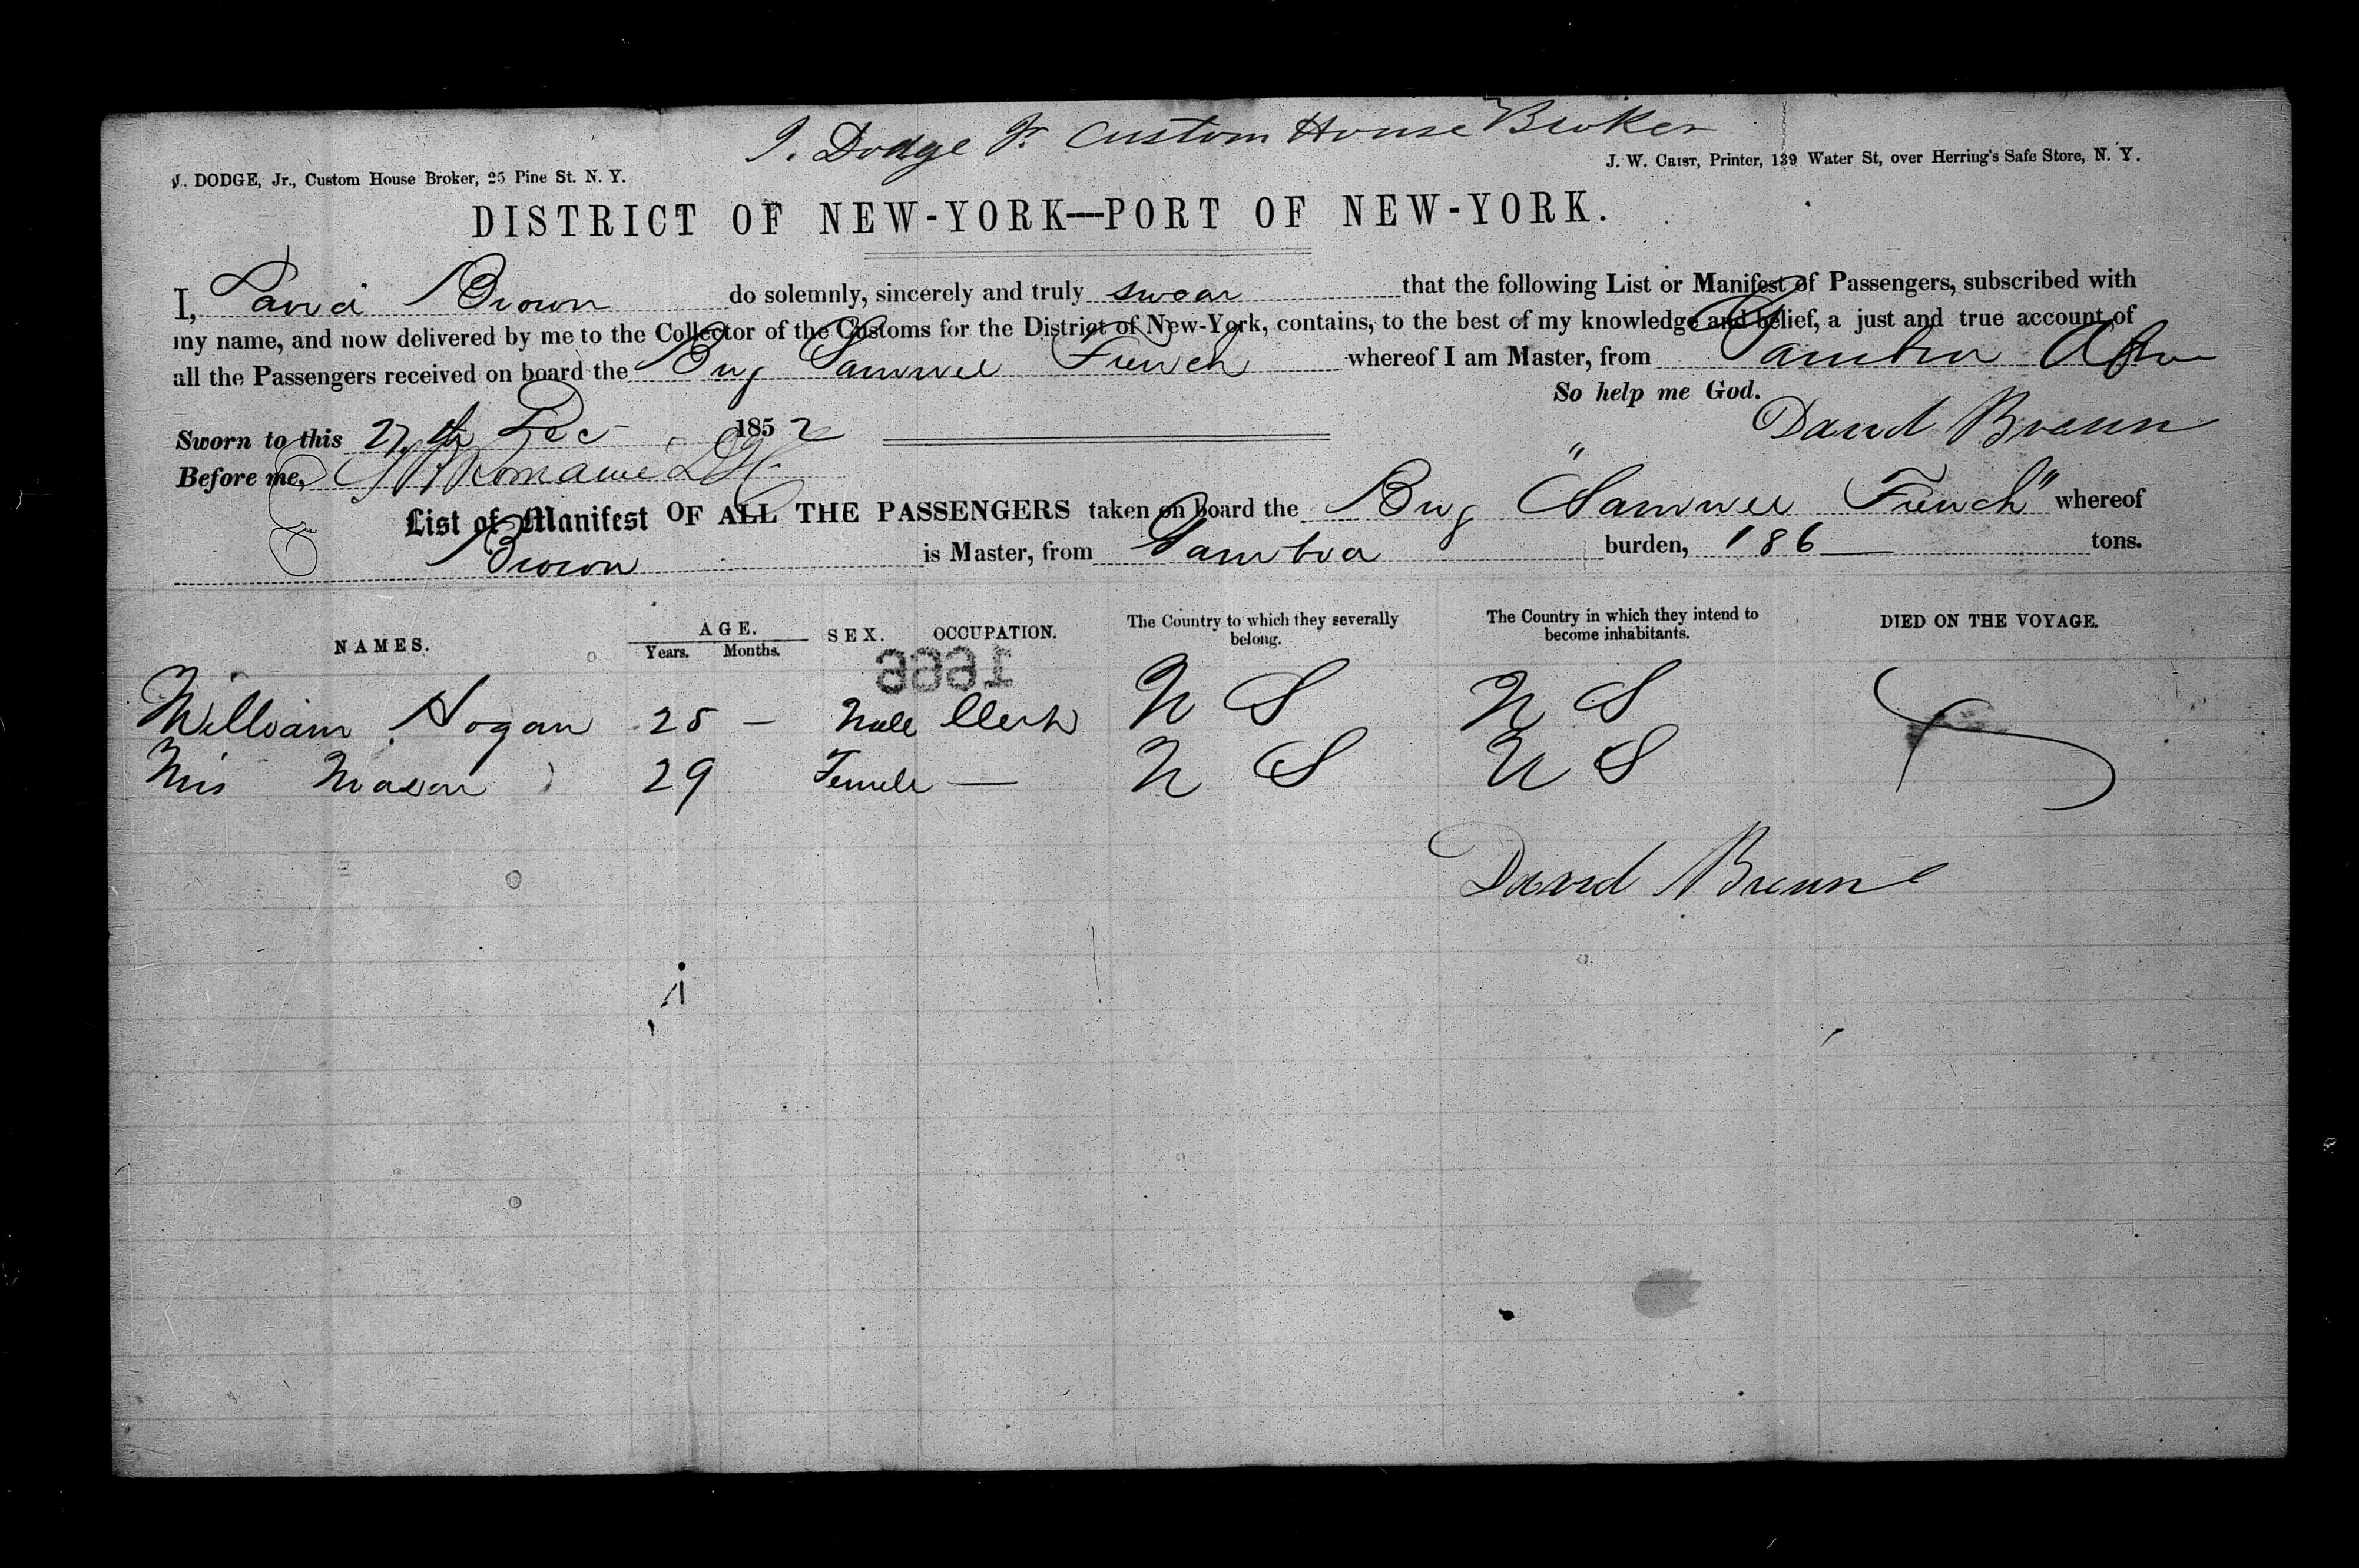 J. Dodge Jr. Custom House Broker
J. DODGE, Jr., Custom House Broker, 25 Pine St. N. Y.
J. W. CRIST, Printer, 139 Water St, over Herring's Safe Store, N. Y.
DISTRICT OF NEW-YORK—PORT OF NEW-YORK.
I, David Brown do solemnly, sincerely and truly swear that the following List or Manifest of Passengers, subscribed with
my name, and now delivered by me to the Collector of the Customs for the District of New-York, contains, to the best of my knowledge and belief, a just and true account of
all the Passengers received on board the Brig Samuel French whereof I am Master, from Gambia
So help me God.
Sworn to this 27th Dec 1852
David Brown
Before me,
List of Manifest OF ALL THE PASSENGERS taken on board the Brig "Samuel French" whereof
Brown is Master, from Gambia burden, 186 tons.
NAMES. AGE. SEX. OCCUPATION. The Country to which they severally belong. The Country in which they intend to become inhabitants. DIED ON THE VOYAGE.
Years. Months.
1666
William Hogan 25 — Male Clerk U S U S
Mrs Mason 29 Female — U S U S
David Brown